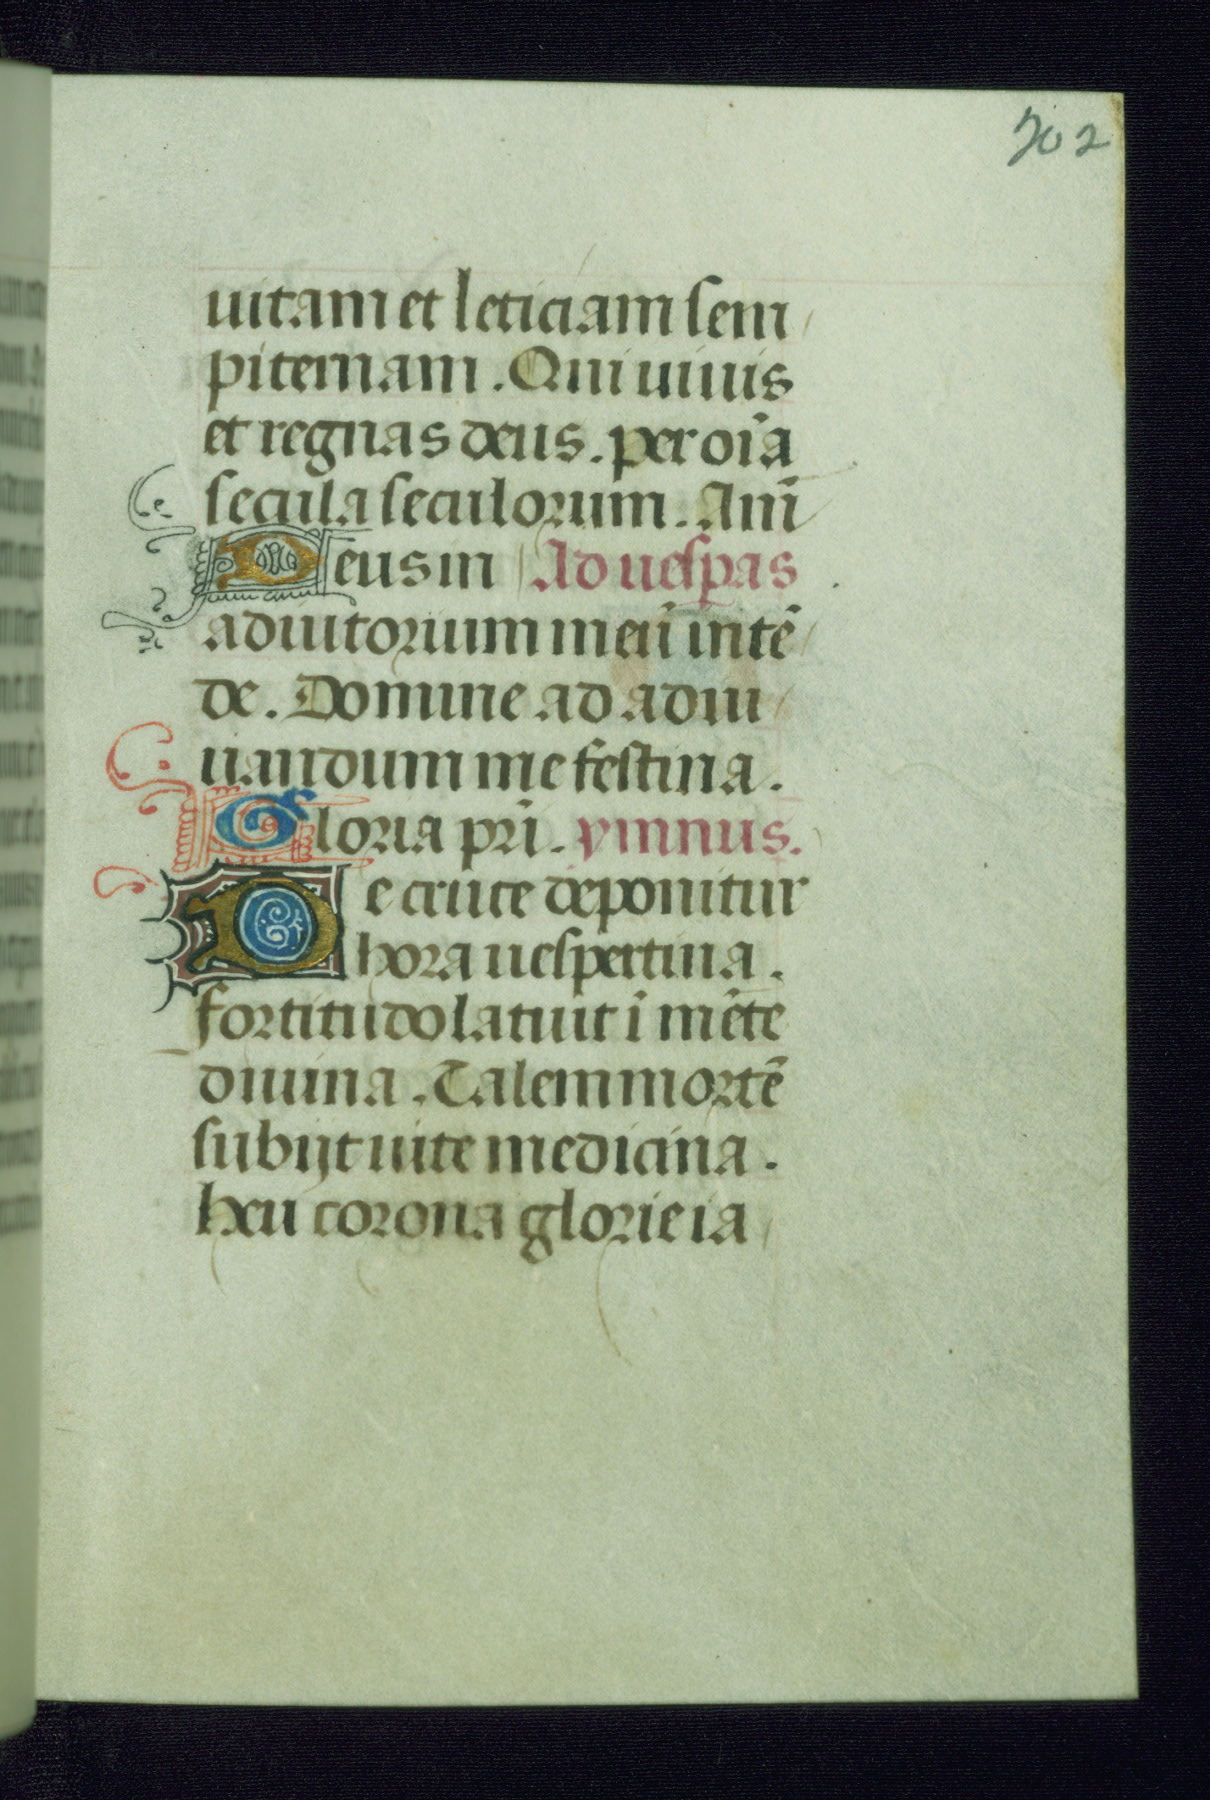 702
uitam et leticiam sem
piternam. Qui uiuis
et regnas deus. per oĩa
secula seculorum. Am̃
Deus in Ad uesp̃as
adiutorium meũ intẽ
de. Domine ad adiu
uandum me festina.
Gloria pr̃i. ymnus.
De cruce deponitur
hora uespertina.
fortitudo latuit ĩ mẽte
diuina. Talem mortẽ
subijt uite medicina.
heu corona glorie ia